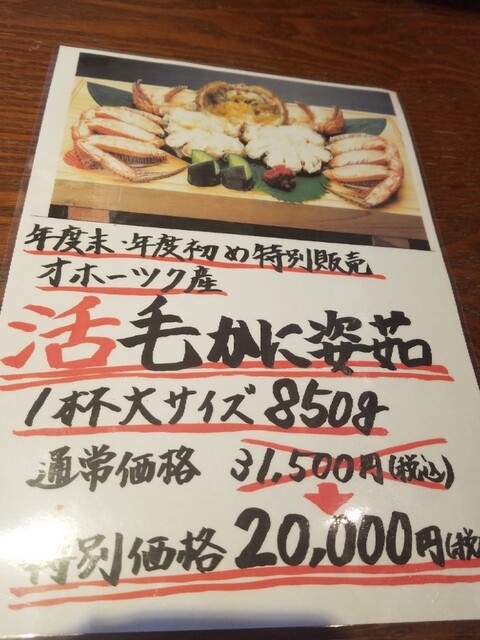 年度末・年度初め特別販売
オホーツク産
活毛かに姿茹
1杯大サイズ 850g
通常価格 31,500円(税込)
特別価格 20,000円(税